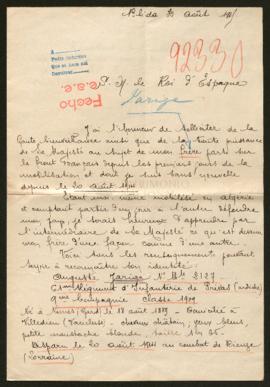 Blida 30 août 191
A
Petit intention
Que se haga así
Fecho
e.s.e.
92330
S. M. le Roi d'Espagne
Farige
J'ai l'honneur de solliciter de la
haute bienveillance ainsi que de la haute puissance
de Sa Majesté au sujet de mon frère parti sur
le front Français depuis les premiers jours de la
mobilisation et dont je suis sans nouvelle
depuis le 20 août 1914
Etant moi même mobilisé en Algérie
et comptant partir d'un jour à l'autre défendre
mon pays, je serais heureux d'apprendre par
l'intermédiaire de Sa Majesté ce qu'est devenu
mon frère d'une façon comme d'une autre.
Voici tous les renseignements pouvant
servir à reconnaître son identité:
Auguste Farige N° Mle 2127
61ème Régiment d'Infanterie de Privas (Ardèche)
9me Compagnie Classe 1909
Né à Nimes (Gard) le 18 août 1889 - Domicilié à
Villedieu (Vaucluse) - cheveux châtain, yeux bleus,
petite moustache blonde, taille 1m 65.
Disparu le 20 août 1914 au combat de Bisping
(Lorraine)